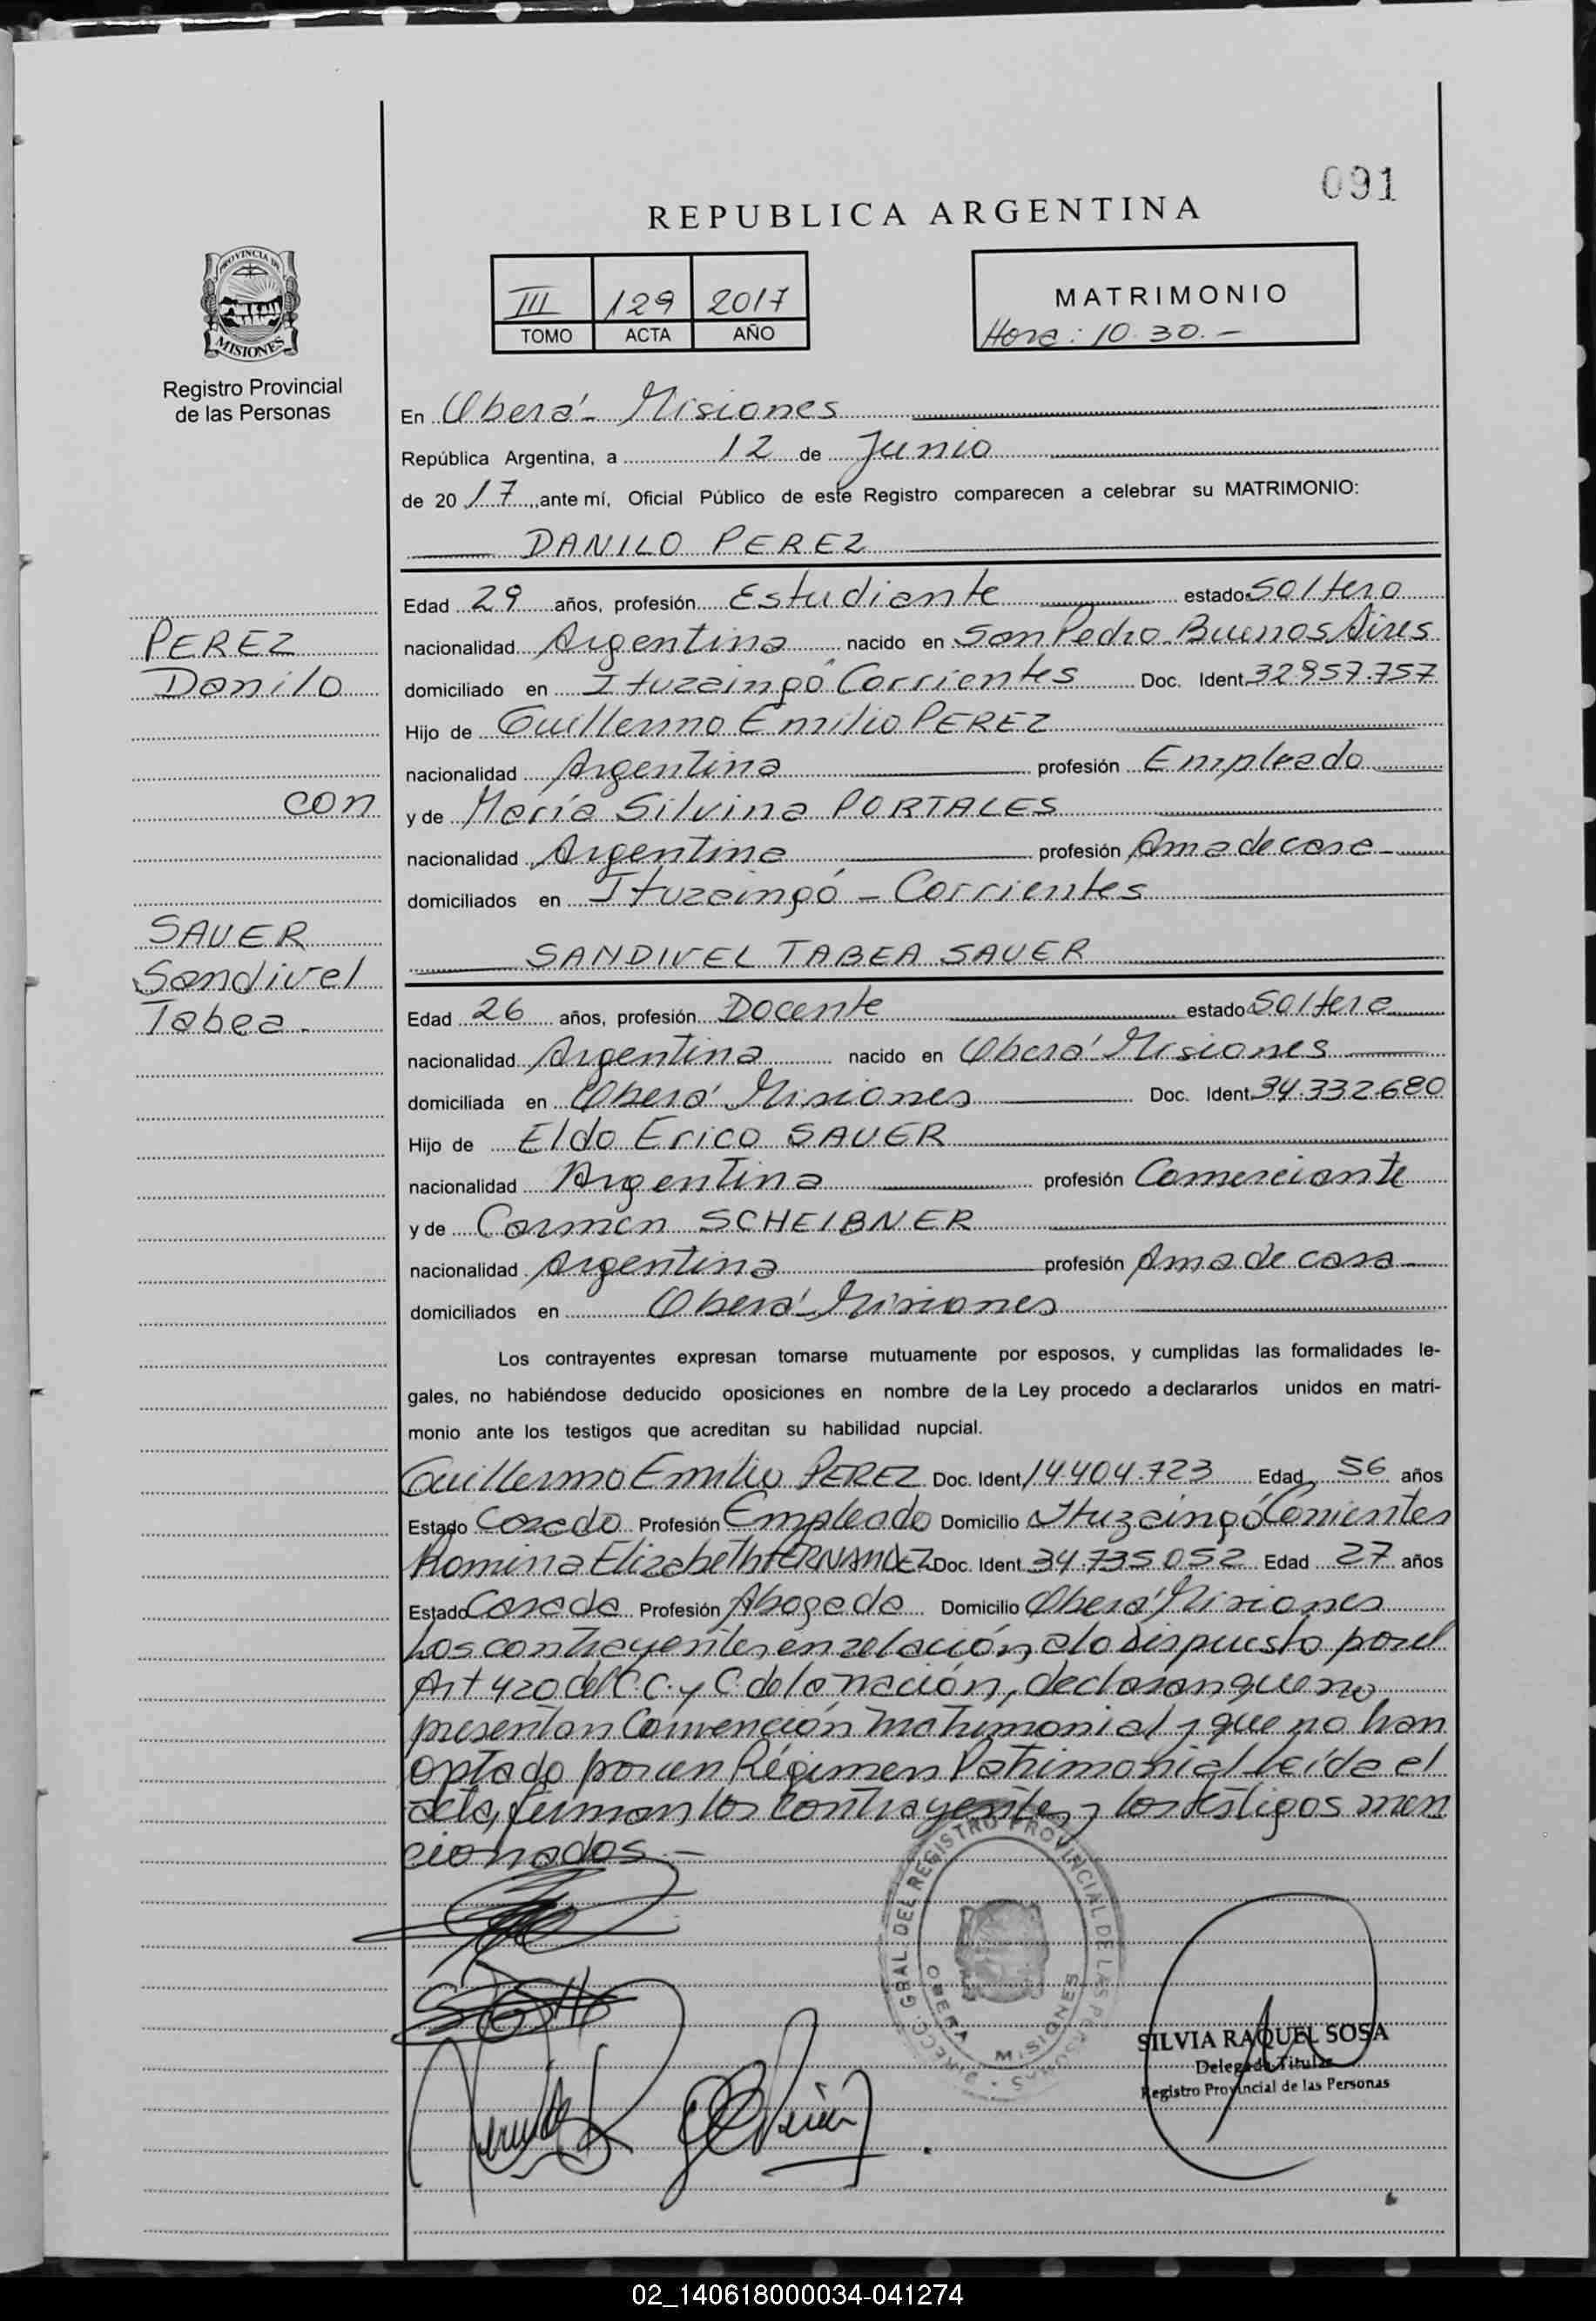 091
REPUBLICA ARGENTINA
III 129 2017
TOMO ACTA AÑO
MATRIMONIO
Hora: 10.30.-
PROVINCIA DE
MISIONES
Registro Provincial
de las Personas
En Oberá - Misiones
República Argentina, a 12 de Junio
de 20 17, ante mí, Oficial Público de este Registro comparecen a celebrar su MATRIMONIO:
DANILO PEREZ
Edad 29 años, profesión Estudiante estado Soltero
PEREZ
nacionalidad Argentina nacido en San Pedro Buenos Aires
Danilo
domiciliado en Ituzaingó Corrientes Doc. Ident. 32.957.757
Hijo de Guillermo Emilio PEREZ
nacionalidad Argentina profesión Empleado
con
y de María Silvina PORTALES
nacionalidad Argentina profesión Ama de casa
domiciliados en Ituzaingó - Corrientes
SAUER
SANDIVEL TABEA SAUER
Sandivel
Tabea.
Edad 26 años, profesión Docente estado Soltera
nacionalidad Argentina nacido en Oberá Misiones
domiciliada en Oberá Misiones Doc. Ident. 34.332.680
Hijo de Eldo Erico SAUER
nacionalidad Argentina profesión Comerciante
y de Carmen SCHEIBNER
nacionalidad Argentina profesión Ama de casa
domiciliados en Oberá - Misiones
Los contrayentes expresan tomarse mutuamente por esposos, y cumplidas las formalidades le-
gales, no habiéndose deducido oposiciones en nombre de la Ley procedo a declararlos unidos en matri-
monio ante los testigos que acreditan su habilidad nupcial.
Guillermo Emilio PEREZ Doc. Ident. 14.404.723 Edad 56 años
Estado Casado Profesión Empleado Domicilio Ituzaingó Corrientes
Romina Elizabeth FERNANDEZ Doc. Ident. 34.735.052 Edad 27 años
Estado Casada Profesión Abogada Domicilio Oberá Misiones
Los contrayentes, en relación a lo dispuesto por el
Art 420 del C.C. y C. de la nación, declaran que no
presentan Convención Matrimonial y que no han
optado por un Régimen Patrimonial. Leída el
acta, firman, los contrayentes y los testigos men
cionados.-
DIRECC. GRAL. DEL REGISTRO PROVINCIAL DE LAS PERSONAS
OBERA MISIONES
SILVIA RAQUEL SOSA
Delegada Titular
Registro Provincial de las Personas
02_140618000034-041274